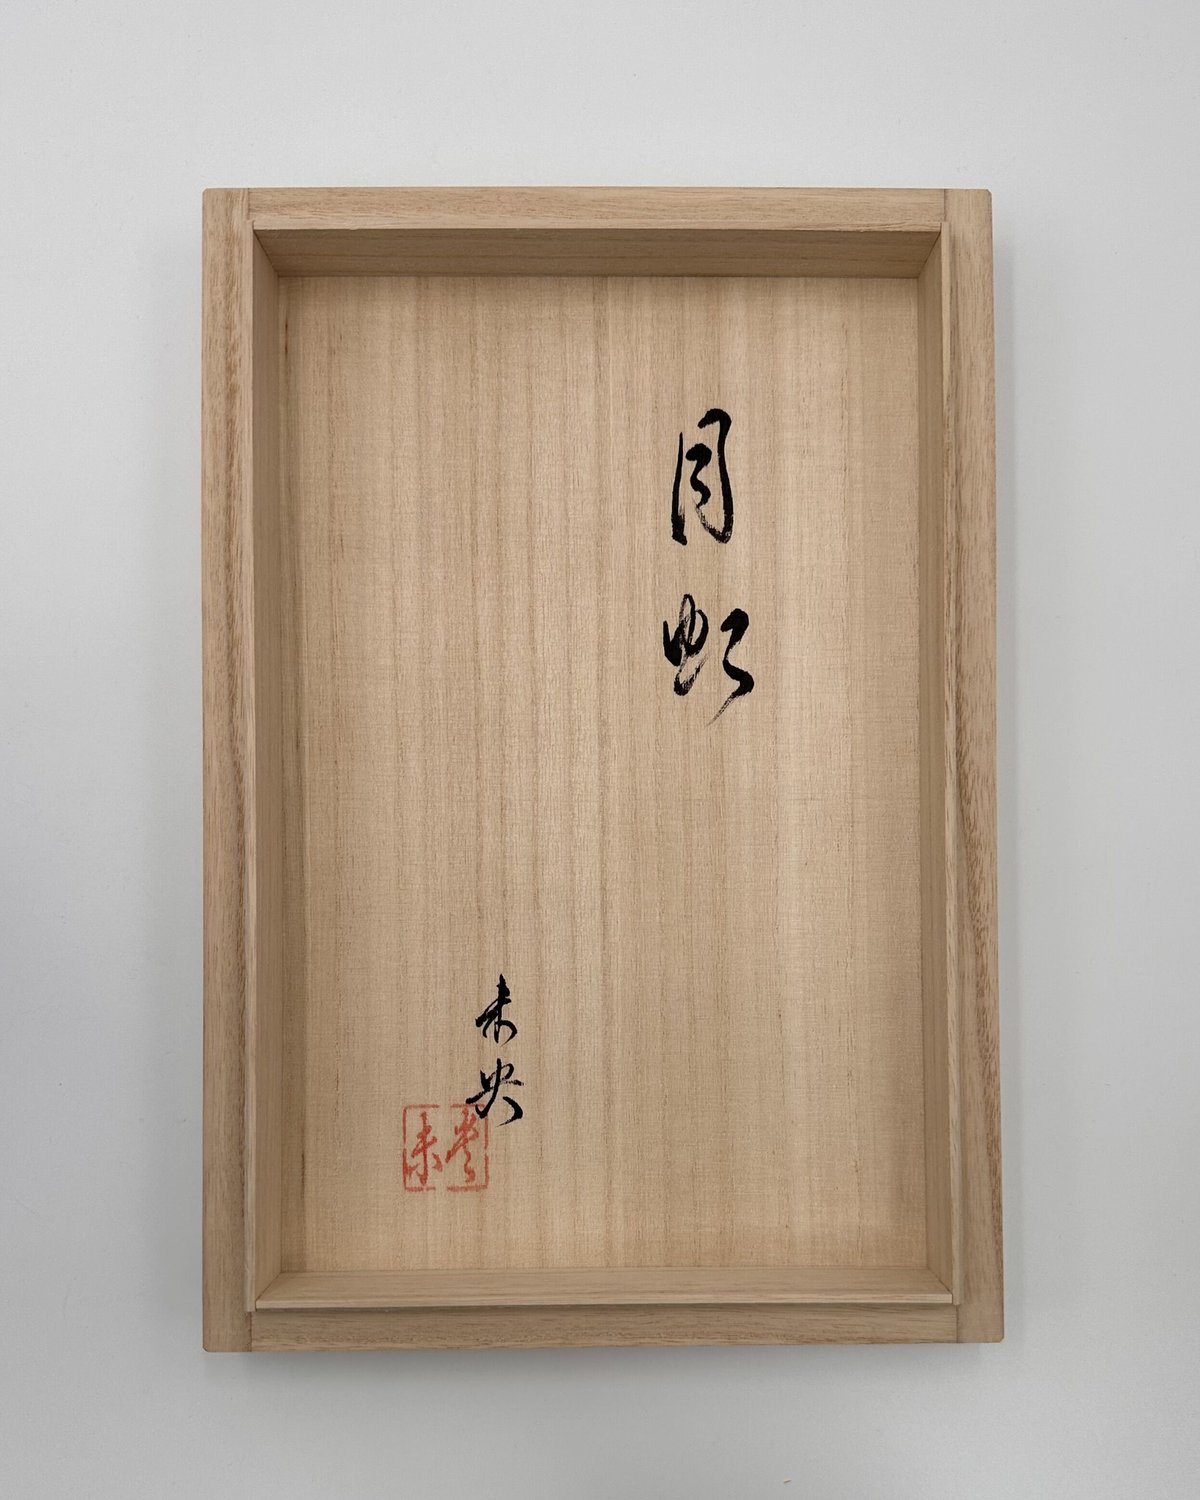 月虹
未央